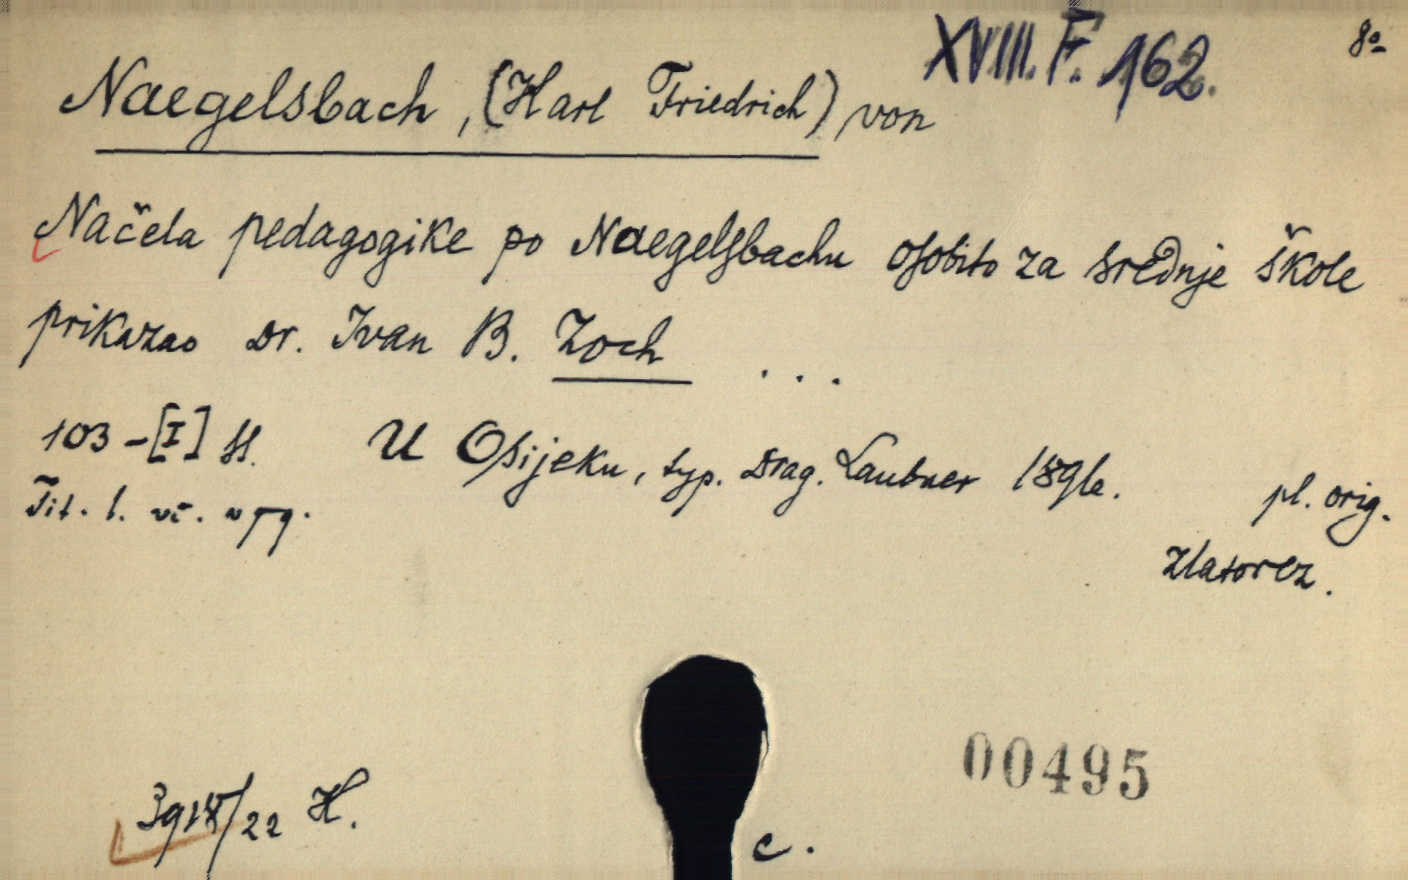 XVIII. F. 162.
8º
Naegelsbach, (Karl Friedrich) von
Načela pedagogike po Naegelsbachu osobito za srednje škole
prikazao Dr. Ivan B. Zoch ...
103-[I] ss. U Osijeku, typ. Drag. Laubner 1896.
Tit. l. vč. v pg.
pl. orig.
Zlatorez.
00495
/22 H.
c.